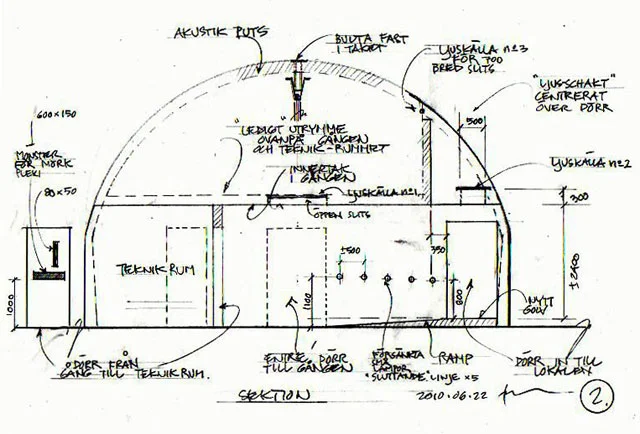 AKUSTIK PUTS
BULTA FAST
I TAKET
LJUSKÄLLA nr 3
FÖR 700
BRED SLITS
"LJUSSCHAKT"
CENTRERAT
ÖVER DÖRR
600 x 150
500
MÖNSTER
FÖR MÖRK
PLEXI
80 x 50
"LEDIGT" UTRYMME
OVANPÅ GÅNGEN
OCH TEKNIK-RUMMET
INNERTAK
GÅNGEN
LJUSKÄLLA nr 2
LJUSKÄLLA nr 1
ÖPPEN SLITS
300
TEKNIKRUM
±500
350
±2400
1000
1100
800
NYTT
GOLV
DÖRR FRÅN
GÅNG TILL TEKNIKRUM.
ENTRÉ DÖRR
TILL GÅNGEN
FÖRSÄNKTA
SMÅ
LAMPOR
"SLUTTANDE" LINJE x5
RAMP
DÖRR IN TILL
LOKALEN
SEKTION
2010.06.22
2.